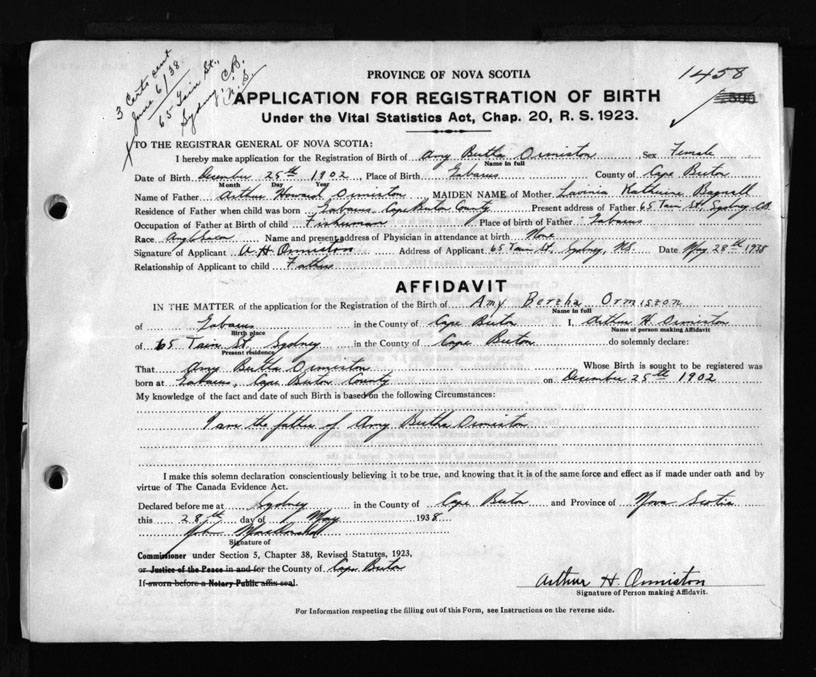 3 Certs sent
June 6/38.
65 Tain St.,
Sydney, C.B.
N.S.
PROVINCE OF NOVA SCOTIA
1458
APPLICATION FOR REGISTRATION OF BIRTH
Under the Vital Statistics Act, Chap. 20, R. S. 1923.
TO THE REGISTRAR GENERAL OF NOVA SCOTIA:
I hereby make application for the Registration of Birth of Amy Bertha Ormiston Sex Female
Name in full
Date of Birth December 25th 1902, Place of Birth Gabarus County of Cape Breton
Month Day Year
Name of Father Arthur Howard Ormiston MAIDEN NAME of Mother Lavinia Katherine Bagnall
Residence of Father when child was born Gabarus, Cape Breton County Present address of Father 65 Tain St. Sydney C.B.
Occupation of Father at Birth of child Fisherman Place of birth of Father Gabarus
Race Name and present address of Physician in attendance at birth None
Signature of Applicant A H Ormiston Address of Applicant 65 Tain St, Sydney, N.S. Date May 28th 1938
Relationship of Applicant to child Father
AFFIDAVIT
IN THE MATTER of the application for the Registration of the Birth of Amy Bertha Ormiston
Name in full
of Gabarus in the County of Cape Breton I, Arthur H. Ormiston
Birth place Name of person making Affidavit
of 65 Tain St. Sydney in the County of Cape Breton do solemnly declare:
Present residence
That Amy Bertha Ormiston Whose Birth is sought to be registered was
born at Gabarus, Cape Breton County on December 25th 1902
My knowledge of the fact and date of such Birth is based on the following Circumstances:
I am the father of Amy Bertha Ormiston
I make this solemn declaration conscientiously believing it to be true, and knowing that it is of the same force and effect as if made under oath and by
virtue of The Canada Evidence Act.
Declared before me at Sydney in the County of Cape Breton and Province of Nova Scotia
this 28th day of May 1938
John MacDonald
Signature of
Commissioner under Section 5, Chapter 38, Revised Statutes, 1923,
or Justice of the Peace in and for the County of Cape Breton
If sworn before a Notary Public affix seal.
Arthur H. Ormiston
Signature of Person making Affidavit.
For Information respecting the filling out of this Form, see Instructions on the reverse side.